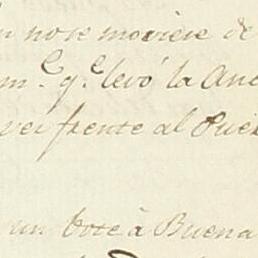 no se moviese de
m.e q.e levó la Anc
ver frente al Puer
un bote à Buena